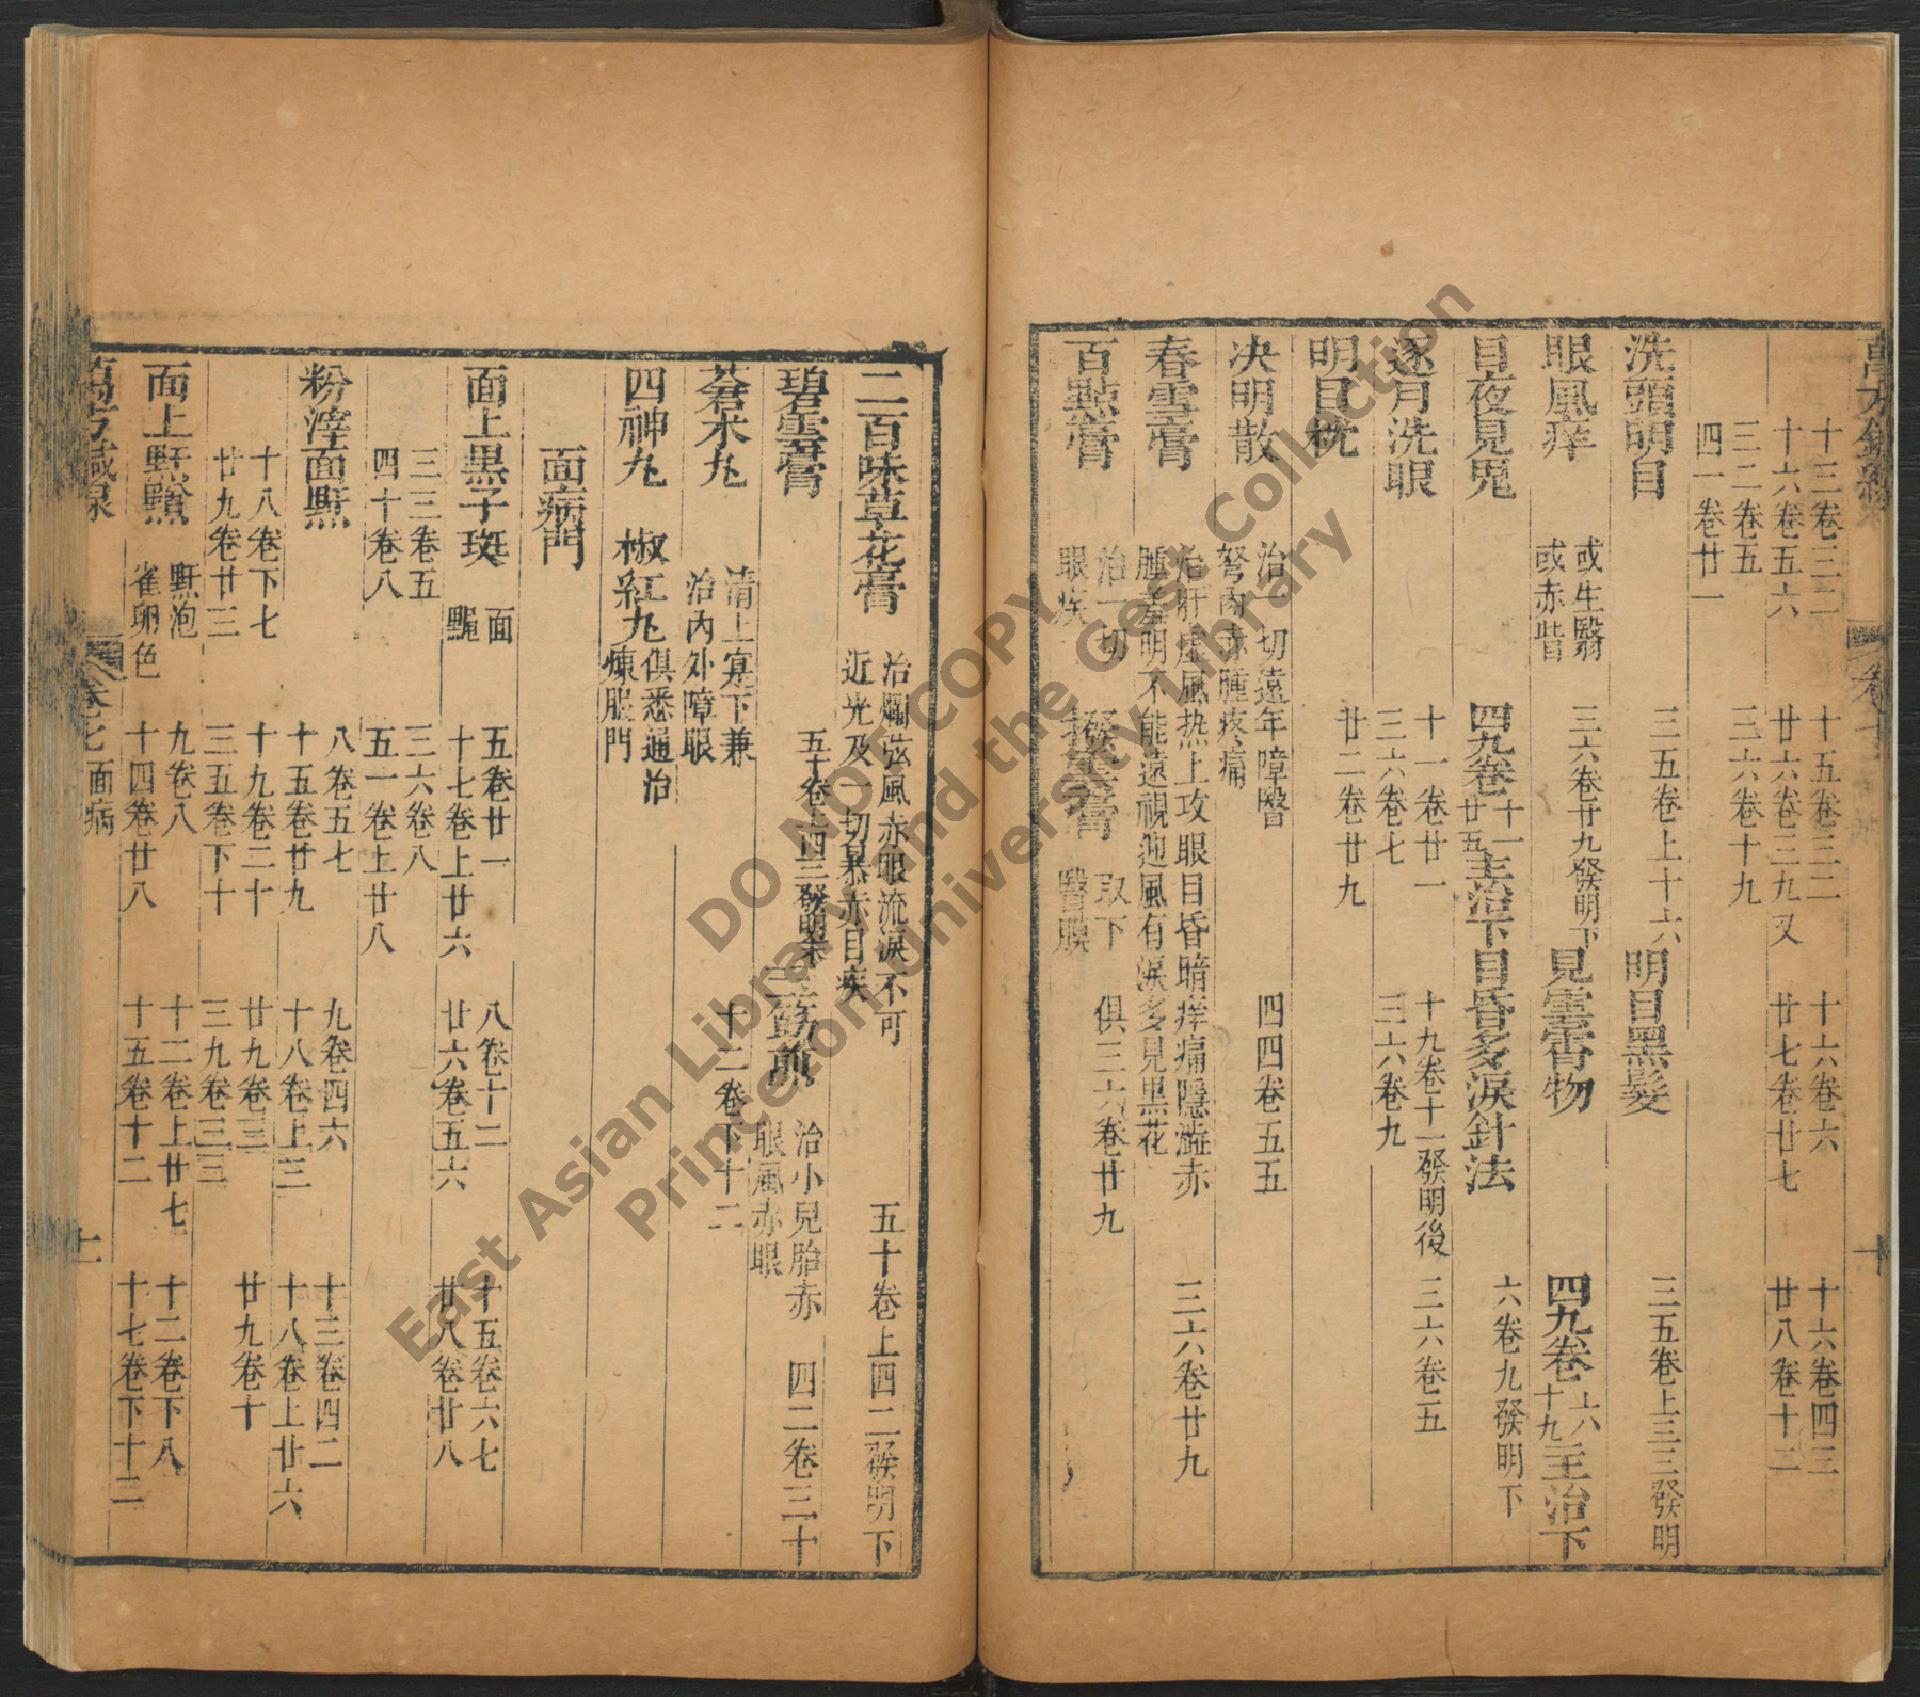 十三卷三二 十五卷三二 十六卷六 十六卷四三
十六卷五六 廿六卷三九又 廿七卷廿七 廿八卷十二
三二卷五 三六卷十九
四一卷廿一
洗頭明目 三五卷上十六 明目黑髮 三五卷上三三發明
眼風痒 或生翳 或赤眥 三六卷廿九發明下 見雲霄物 四九卷 六 十九 主治下
目夜見鬼 四九卷 十一 廿五 主治下 目昏多淚針法 六卷九發明下
逐月洗眼 十一卷廿一 十九卷十一發明後 三六卷五
三六卷七 三六卷九
明目枕 廿二卷廿九
决明散 治一切遠年障翳
弩肉赤腫疼痛 四四卷五五
春雪膏 治肝虛風热上攻眼目昏暗痒痛隱澁赤
腫羞明不能遠視迎風有淚多見黑花 三六卷廿九
百點膏 治一切
眼疾 撥雲膏 取下
翳膜 俱三六卷廿九
二百味草花膏 治爛弦風赤眼流淚不可
近光及一切暴赤目疾 五十卷上四二發明下
碧雲膏 五十卷上四三發明余 三蒭煎 治小兒胎赤
眼風赤眼 四二卷三十
蒼术丸 清上寔下兼
治內外障眼 十二卷下十二
四神丸 椒紅丸 俱悉通治
煉服門
面病門
面上黑子斑 面
䵴 五卷廿一 八卷十二 十五卷六七
十七卷上廿六 廿六卷五六 廿八卷廿八
三三卷五 三六卷八
四十卷八 五一卷上廿八
粉滓面䵟 八卷五七 九卷四六 十三卷四二
十五卷廿九 十八卷上三 十八卷上廿六
十八卷下七 十九卷二十 廿九卷三 廿九卷十
廿九卷廿三 三五卷下十 三九卷三三
面上䵟䵳 䵟泡
雀卵色 九卷八 十二卷上廿七 十二卷下八
十四卷廿八 十五卷十二 十七卷下十二
萬方鍼線 卷七 面病 十一
DO NOT COPY
East Asian Library and the Gest Collection
Princeton University Library